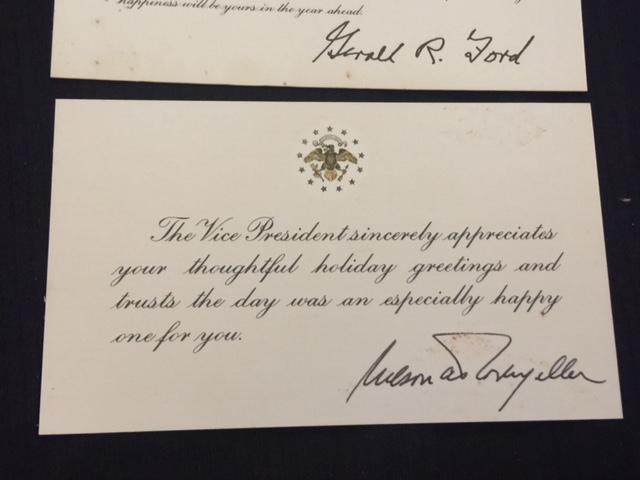 happiness will be yours in the year ahead.
Gerald R. Ford
The Vice President sincerely appreciates
your thoughtful holiday greetings and
trusts the day was an especially happy
one for you.
Nelson A Rockefeller